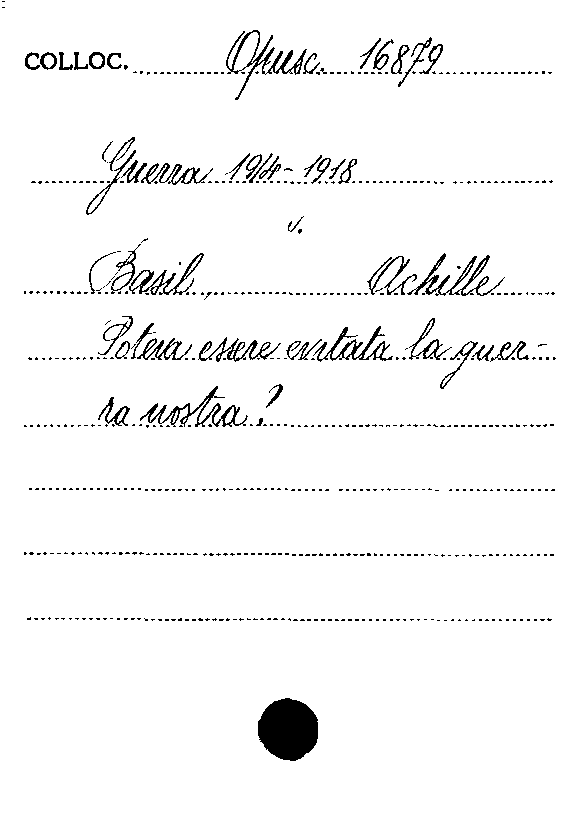 COLLOC. Opusc. 16879
Guerra 1914-1918
v.
Basil, Achille
Poteva essere evitata la guer-
ra nostra?